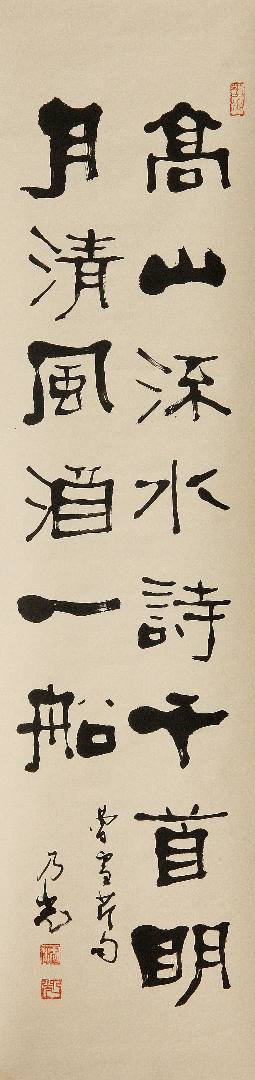 高山流水詩千首明
月清風酒一船
曹雪芹句
乃光